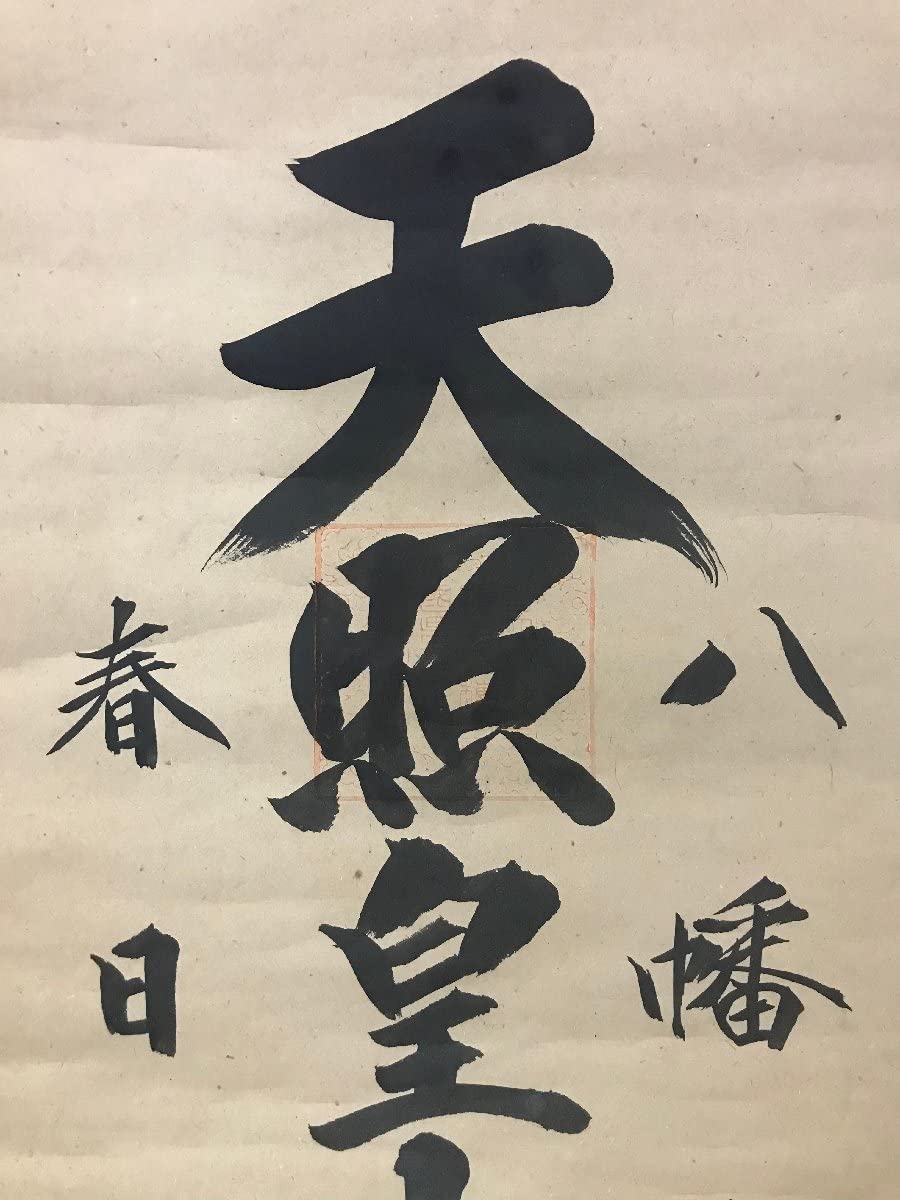 八幡
天照皇
春日